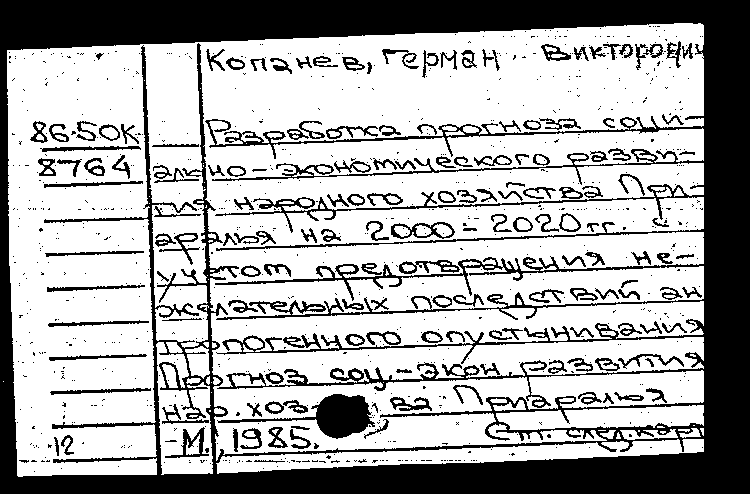 Копанев, Герман Викторович
86-50К Разработка прогноза соци-
8764 ально-экономического разви-
тия народного хозяйства При-
аралья на 2000-2020 гг. с
учетом предотвращения не-
желательных последствий ан
тропогенного опустынивания
Прогноз соц.-экон. развития
нар. хоз ва Приаралья
12 -М., 1985. См. след. карт